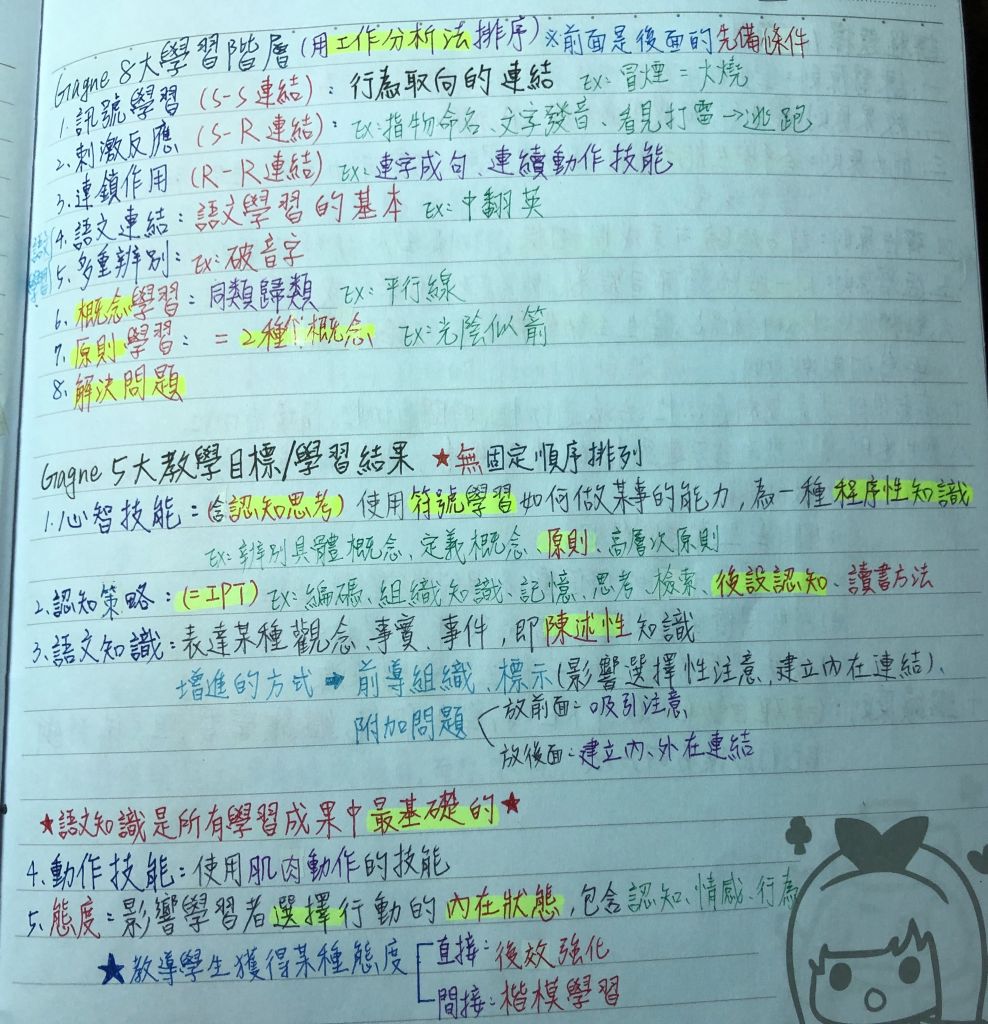 Gagne 8大學習階層(用工作分析法排序)※前面是後面的先備條件
1.訊號學習 (S-S連結):行為取向的連結 Ex:冒煙=火燒
2.刺激反應 (S-R連結):Ex:指物命名、文字發音、看見打雷→逃跑
3.連鎖作用 (R-R連結) Ex:連字成句、連續動作技能
4.語文連結:語文學習的基本 Ex:中翻英
5.多重辨別:Ex:破音字
6.概念學習:同類歸類 Ex:平行線
7.原則學習:=2種↑概念 Ex:光陰似箭
8.解決問題
Gagne 5大教學目標/學習結果 ★無固定順序排列
1.心智技能:(含認知思考)使用符號學習如何做某事的能力,為一種程序性知識
Ex:辨別具體概念、定義概念、原則、高層次原則
2.認知策略:(=IPT) Ex:編碼、組織知識、記憶、思考、檢索、後設認知、讀書方法
3.語文知識:表達某種觀念、事實、事件,即陳述性知識
增進的方式➡前導組織、標示(影響選擇性注意、建立內在連結)、
附加問題
放前面:吸引注意
放後面:建立內、外在連結
★語文知識是所有學習成果中最基礎的★
4.動作技能:使用肌肉動作的技能
5.態度:影響學習者選擇行動的內在狀態,包含認知、情感、行為
★教導學生獲得某種態度
直接:後效強化
間接:楷模學習